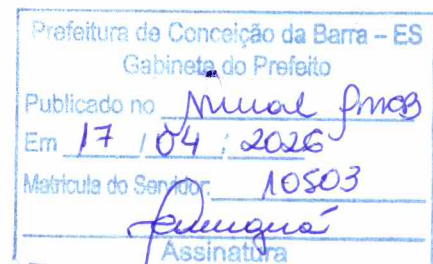 Prefeitura de Conceição da Barra – ES
Gabinete do Prefeito
Publicado no Mural PMCB
Em 17 / 04 / 2026
Matrícula do Servidor: 10503
Assinatura